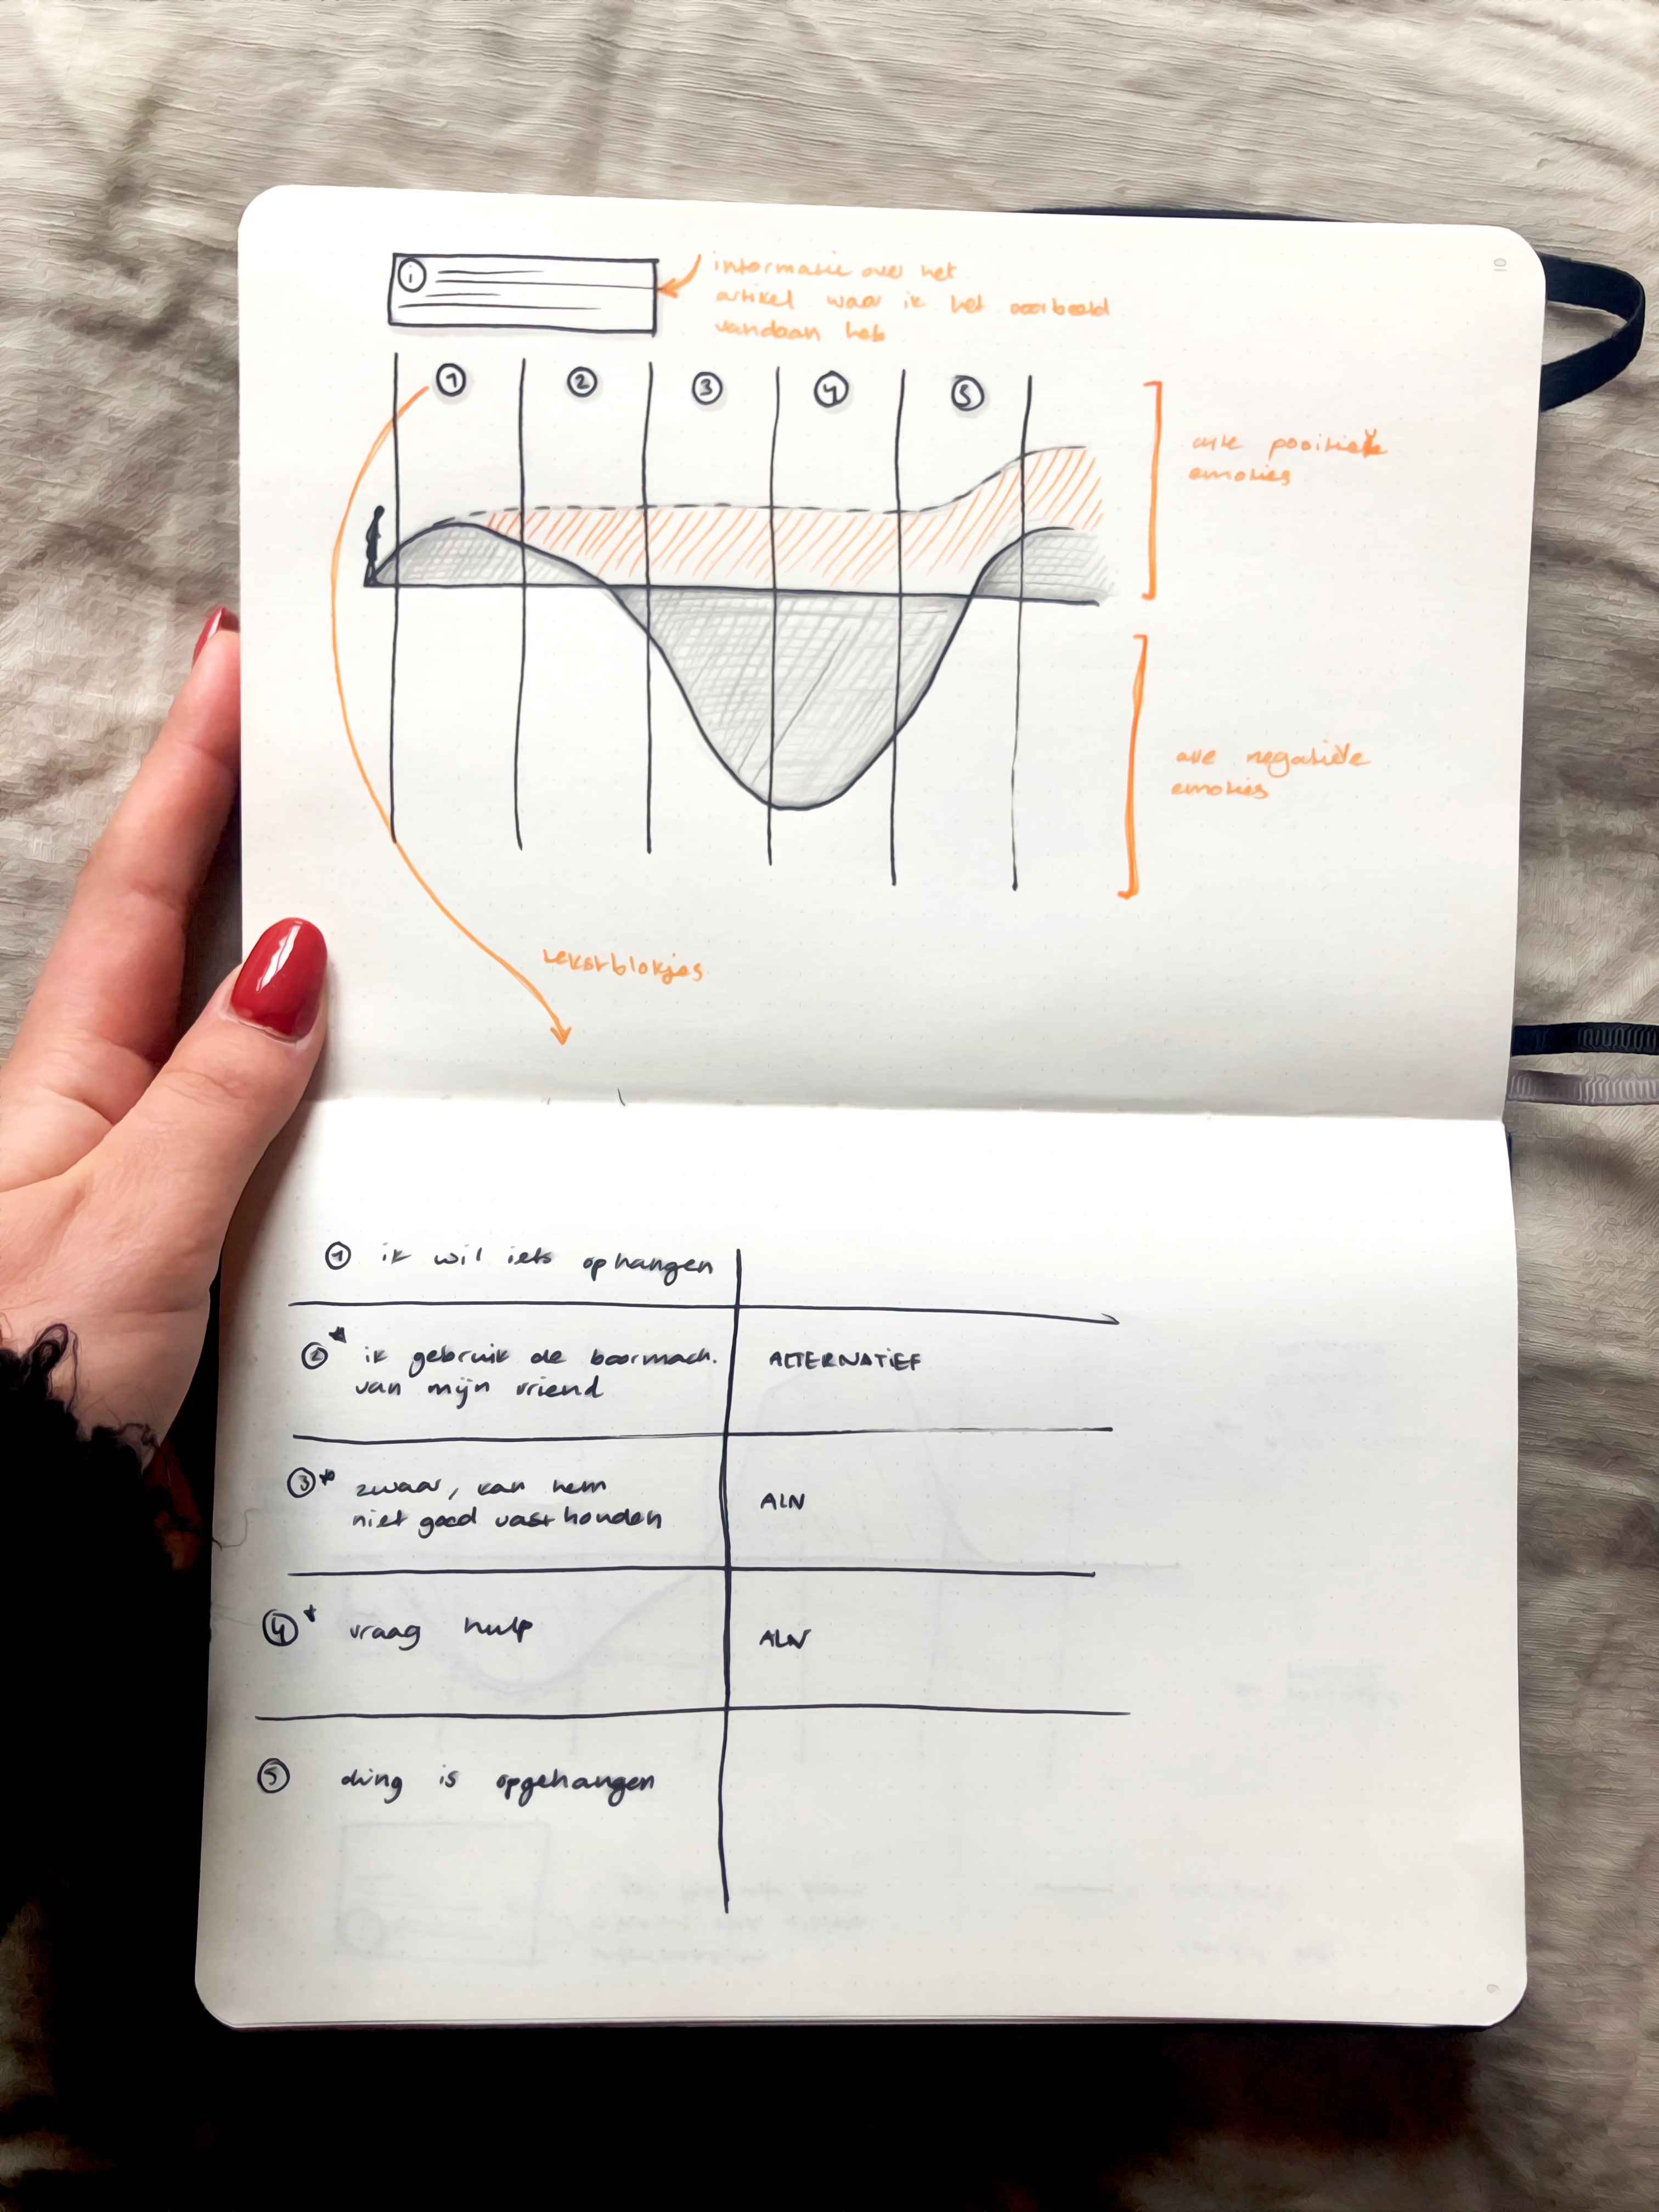 i
informatie over het
artikel waar ik het voorbeeld
vandaan heb
1 2 3 4 5
alle positieve
emoties
alle negatieve
emoties
tekstblokjes
1 ik wil iets ophangen
2* ik gebruik de boormach.
van mijn vriend
ALTERNATIEF
3* zwaar, kan hem
niet goed vasthouden
ALN
4* vraag hulp
ALN
5 ding is opgehangen
10
9